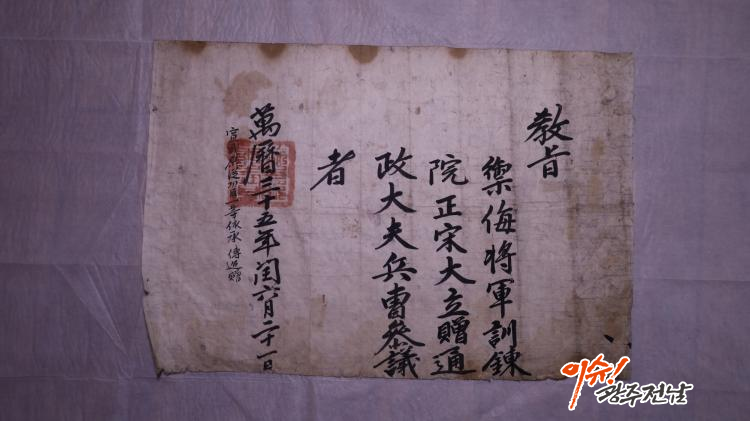 教旨
禦侮將軍訓鍊
院正宋大立贈通
政大夫兵曹叅議
者
萬曆三十五年閏六月二十一日
宣武原從功臣一等依承 傳追贈
이슈!
광주전남